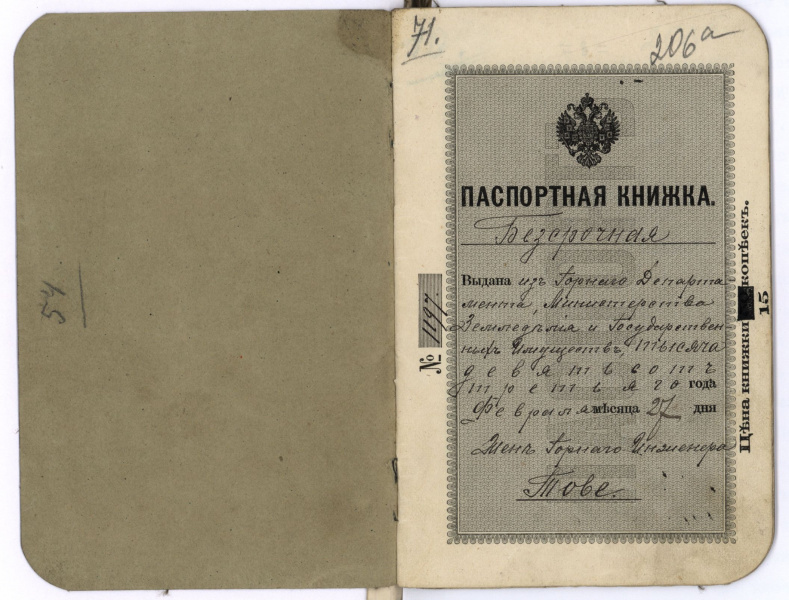 71.
206а
ПАСПОРТНАЯ КНИЖКА.
Безсрочная
Выдана изъ Горнаго Департа
мента, Министерства
Земледѣлія и Государствен-
ныхъ Имуществъ, тысяча
девятьсотъ
третьяго года
Февраля мѣсяца 27 дня
Женѣ Горнаго Инженера
Тове.
№ 1197
Цѣна книжки 15 копѣекъ.
54